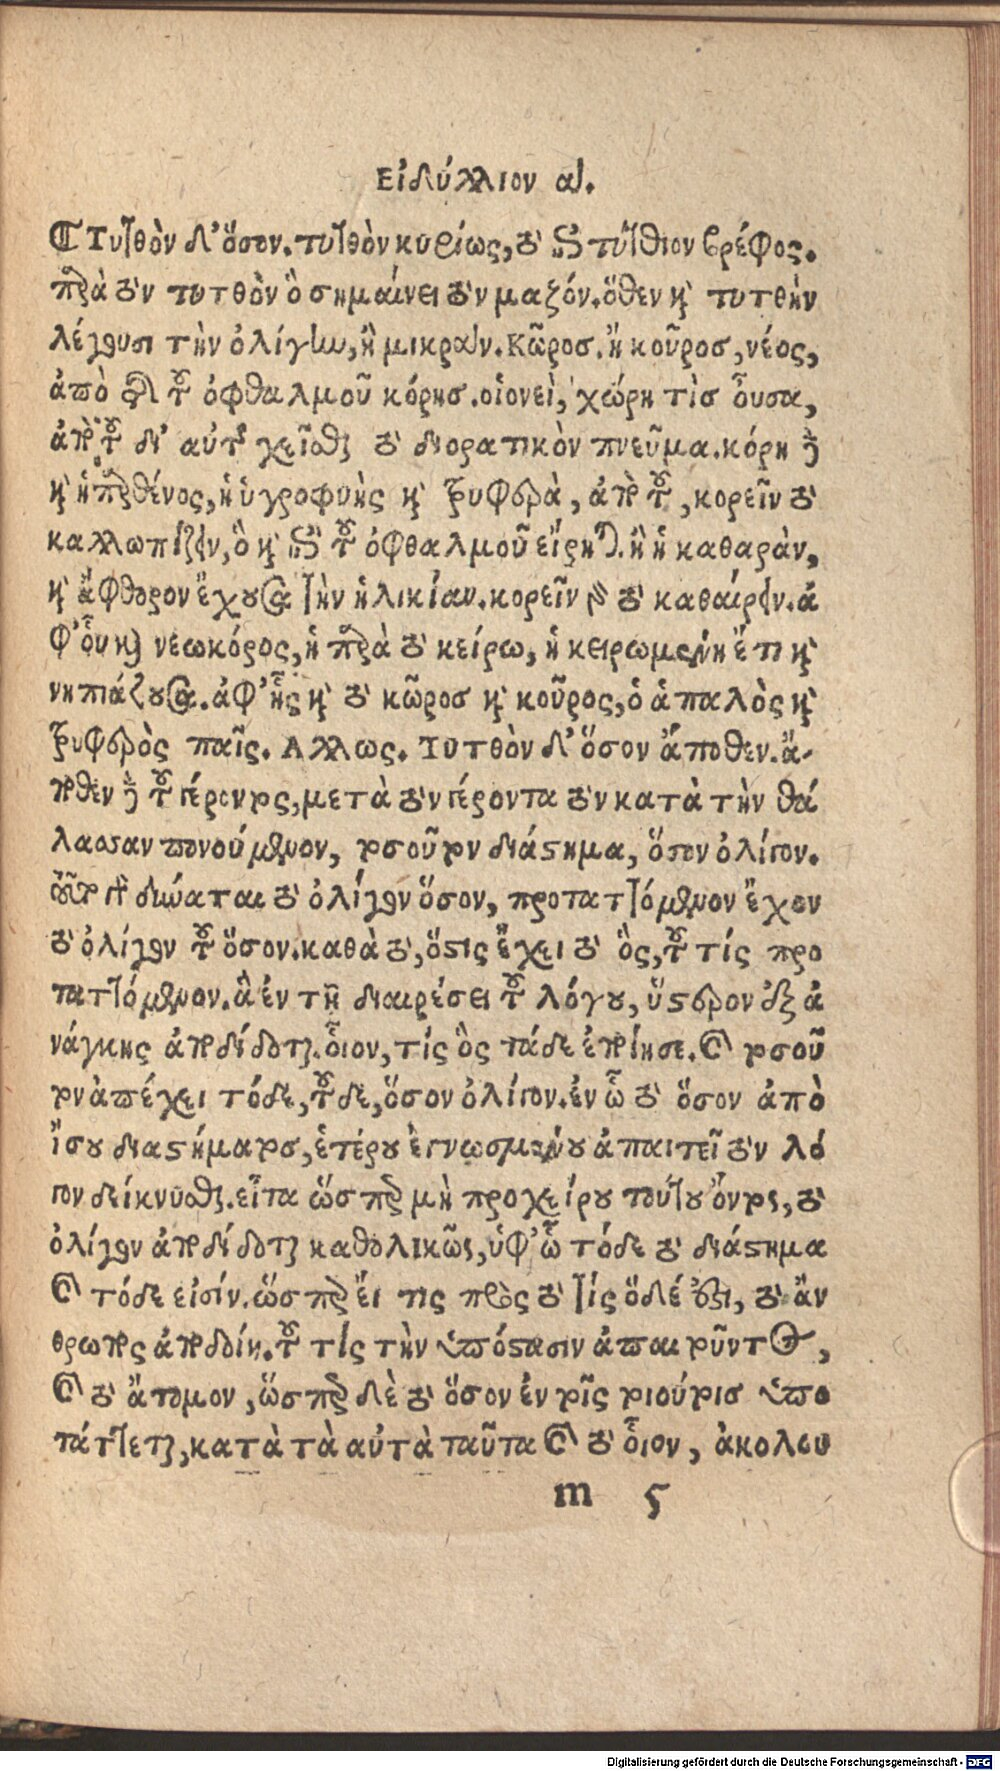 Εἰδύλλιον α.
Τυτθὸν δ' ὅσον. τυτθὸν κυρίως, τὸ ἐπὶ τύτθιον βρέφος.
παρὰ τὸν τυτθὸν ὃ σημαίνει τὸν μαζόν. ὅθεν καὶ τυτθὴν
λέγουσι τὴν ὀλίγην, ἢ μικράν. Κῶροσ. ἢ κοῦροσ, νέος,
ἀπὸ τῆς τοῦ ὀφθαλμοῦ κόρησ. οἱονεὶ, χώρη τὶσ οὖσα,
ἀπὸ τοῦ δι' αὐτῆς χεῖσθαι τὸ διορατικὸν πνεῦμα. κόρη δὲ
καὶ ἡ παρθένος, ἡ ὑγροφυὴς καὶ τρυφερὰ, ἀπὸ τοῦ, κορεῖν τὸ
καλλωπίζειν, ὃ καὶ ἐπὶ τοῦ ὀφθαλμοῦ εἴρηται. ἢ ἡ καθαρὰν,
καὶ ἄφθορον ἔχουσα τὴν ἡλικίαν. κορεῖν γὰρ τὸ καθαίρειν. ἀ
φ' οὗ καὶ νεωκόρος, ἢ παρὰ τὸ κείρω, ἡ κειρωμένη ἔτι καὶ
νηπιάζουσα. ἀφ' ἧς καὶ τὸ κῶροσ καὶ κοῦρος, ὁ ἁπαλὸς καὶ
τρυφερὸς παῖς. Αλλως. Τυτθὸν δ' ὅσον ἄποθεν. ἄ-
ποθεν δὲ τοῦ γέροντος, μετὰ τὸν γέροντα τὸν κατὰ τὴν θά
λασσαν πονούμενον, τοσοῦτον διάστημα, ὅσον ὀλίγον.
δύναται τὸ ὀλίγον ὅσον, προταττόμενον ἔχον
τὸ ὀλίγον τοῦ ὅσον. καθὰ τὸ, ὅστις ἔχει τὸ ὃς, τοῦ τίς προ
ταττόμενον. ἃ ἐν τῇ διαιρέσει τοῦ λόγου, ὕστερον ἐξ ἀ
νάγκης ἀποδίδοται. οἷον, τίς ὃς τάδε ἐποίησε. καὶ τοσοῦ
τον ἀπέχει τόδε, τοῦδε, ὅσον ὀλίγον. ἐν ᾧ τὸ ὅσον ἀπὸ
ἴσου διαστήματοσ, ἑτέρου ἐγνωσμένου ἀπαιτεῖ τὸν λό
γον δείκνυσθαι. εἶτα ὥσπερ μὴ προχείρου τούτου ὄντος, τὸ
ὀλίγον ἀποδίδοται καθολικῶς, ὑφ' ᾧ τόδε τὸ διάστημα
καὶ τόδε εἰσίν. ὥσπερ εἴ τις πρὸς τὸ τίς ὅδέ ἐστι, τὸ ἄν
θρωπος ἀποδοίη. τοῦ τίς τὴν ὑπόστασιν ἀπαιτοῦντος,
καὶ τὸ ἄτομον, ὥσπερ δὲ τὸ ὅσον ἐν τοῖς τοιούτοισ ὑπο
τάττεται, κατὰ τὰ αὐτὰ ταῦτα καὶ τὸ οἷον, ἀκολου
m 5
Digitalisierung gefördert durch die Deutsche Forschungsgemeinschaft - DFG